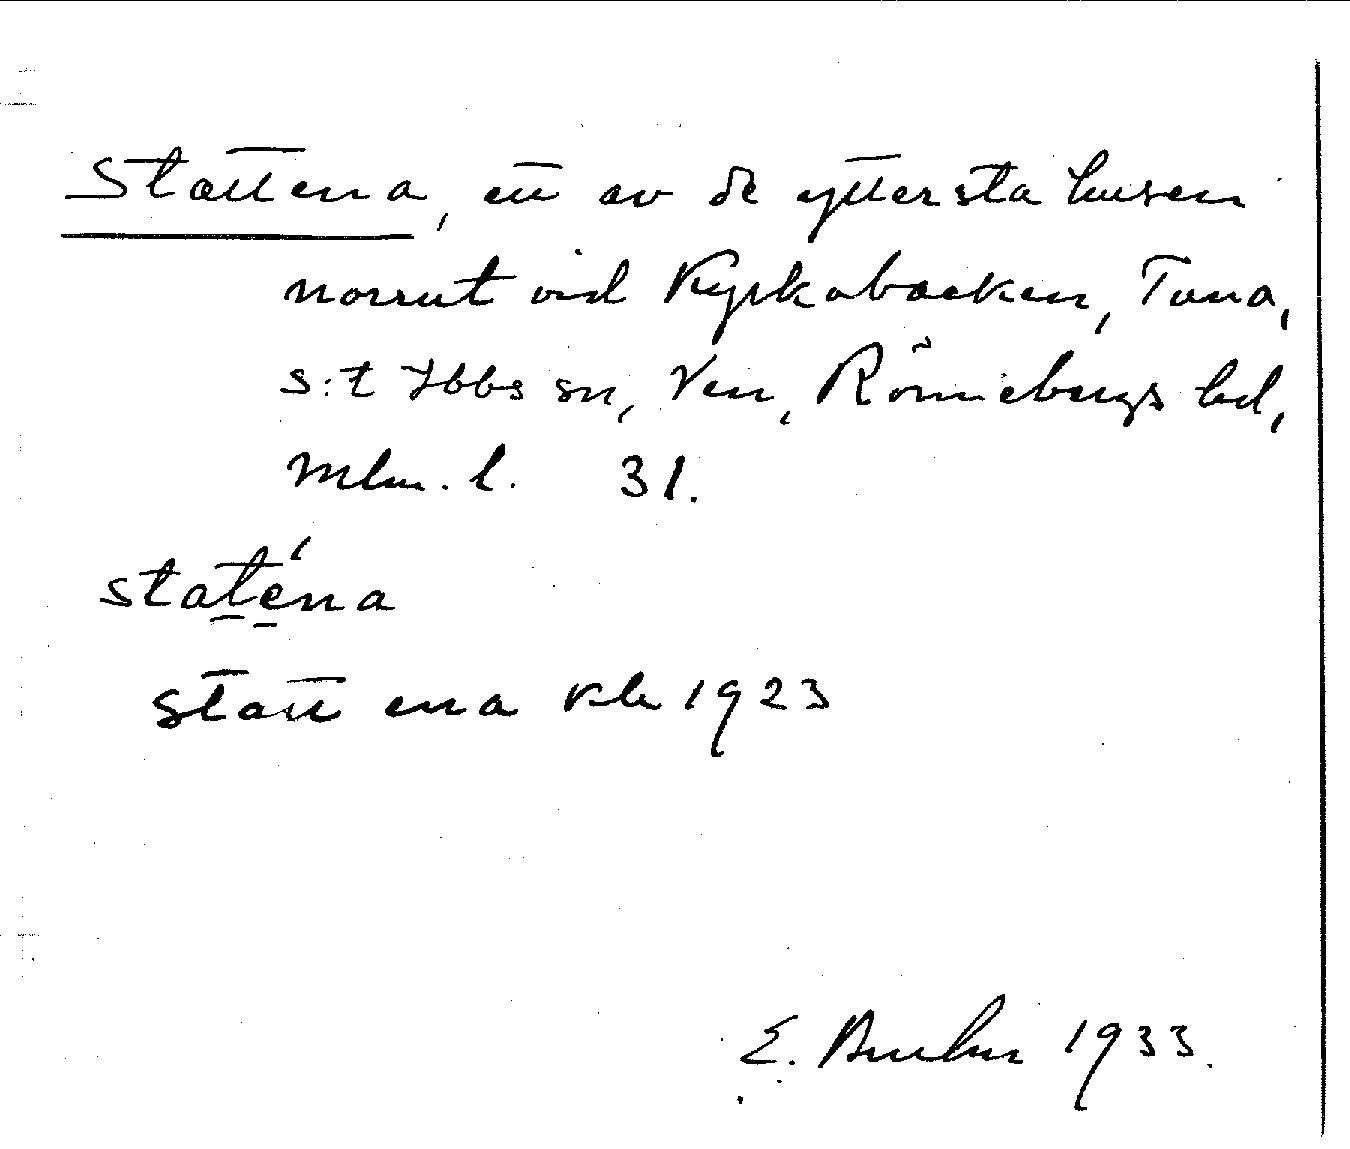 Stattena, ett av de yttersta husen
norrut vid Kyrkobacken, Tuna,
s:t Ibbs sn, Ven, Rönnebergs hd,
Mlm. l. 31.
staténa
Statt ena 1923
E. 1933.